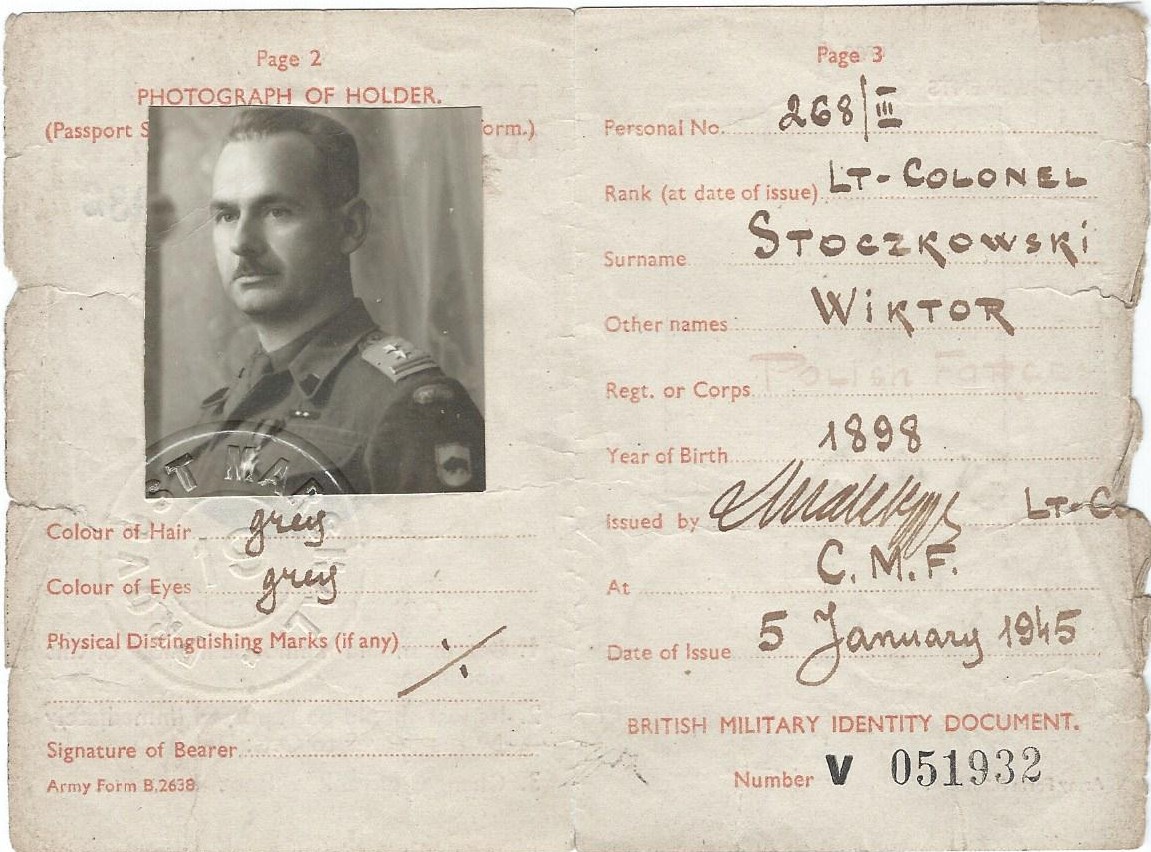 Page 2
PHOTOGRAPH OF HOLDER.
(Passport S
orm.)
ST MAR
Colour of Hair grey
Colour of Eyes grey
Physical Distinguishing Marks (if any) ·/·
Signature of Bearer
Army Form B.2638
Page 3
Personal No. 268/III
Rank (at date of issue) LT-COLONEL
Surname STOCZKOWSKi
Other names WiKTOR
Regt. or Corps
Year of Birth 1898
Issued by LT-C
At C.M.F.
Date of Issue 5 January 1945
BRITISH MILITARY IDENTITY DOCUMENT.
Number V 051932